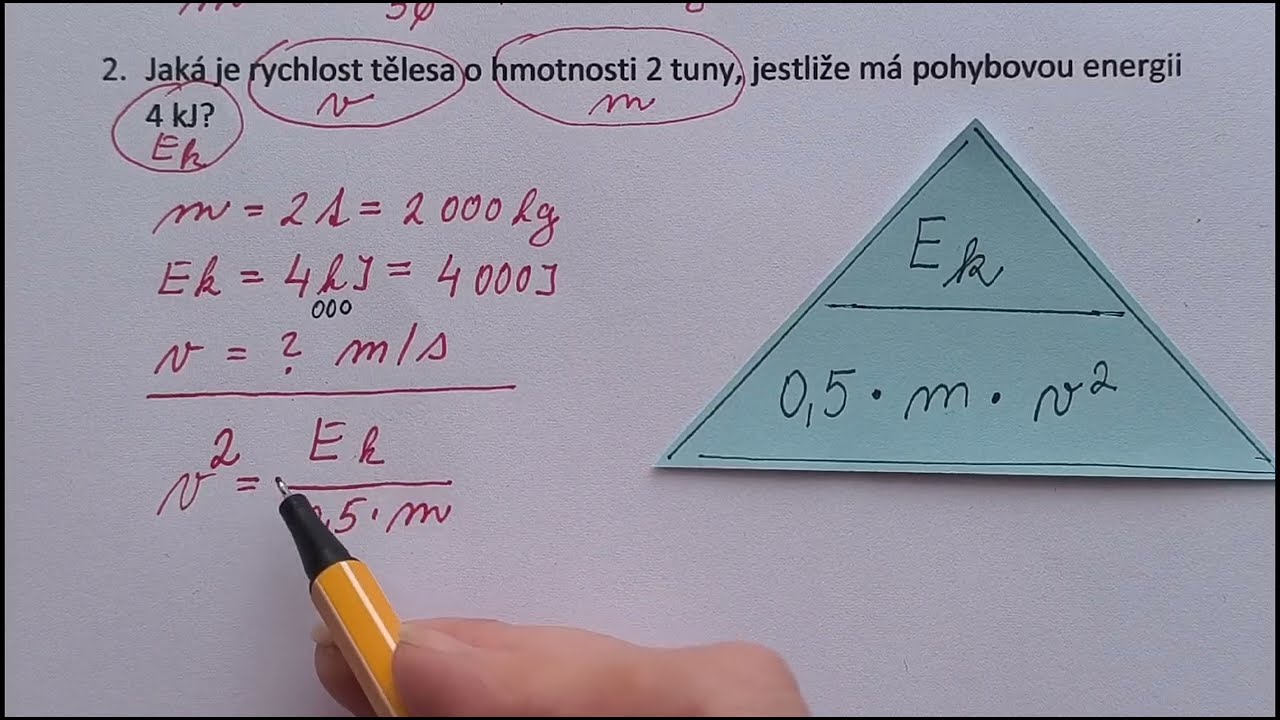 2. Jaká je rychlost tělesa o hmotnosti 2 tuny, jestliže má pohybovou energii
v m
4 kJ?
Ek
m = 2 t = 2 000 kg
Ek = 4 kJ = 4 000 J
000
v = ? m/s
v² = Ek
0,5 · m
Ek
0,5 · m · v²